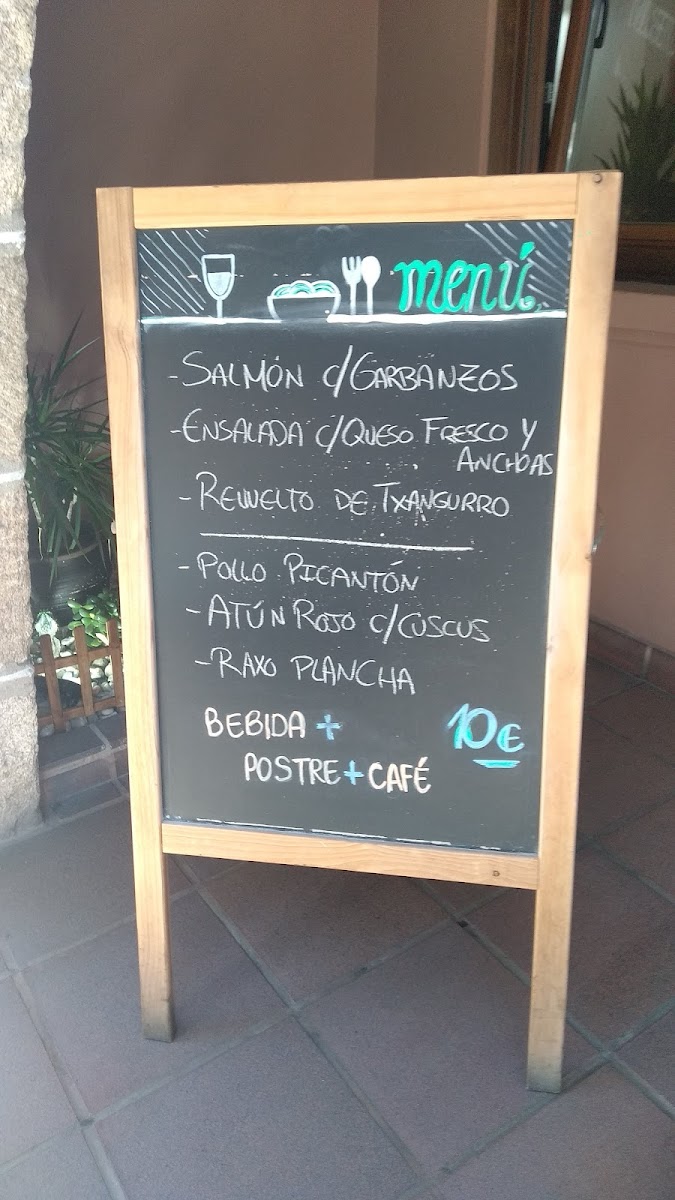 menú
-SALMÓN c/GARBANZOS
-ENSALADA c/QUESO FRESCO Y
ANCHOAS
-REVUELTO DE TXANGURRO
-POLLO PICANTÓN
-ATÚN ROJO c/CUSCUS
-RAXO PLANCHA
BEBIDA +
10€
POSTRE+CAFÉ